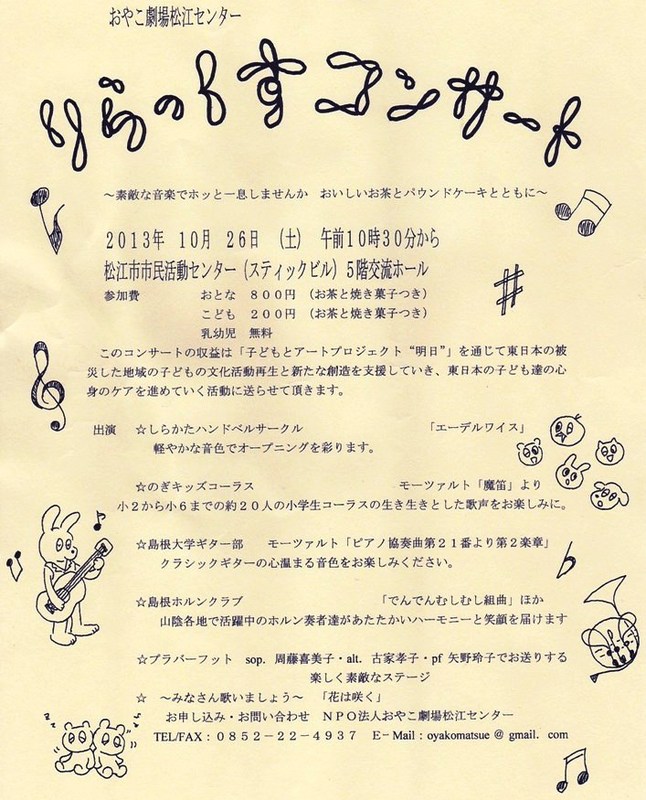 おやこ劇場松江センター
りらっくすコンサート
～素敵な音楽でホッと一息しませんか　おいしいお茶とパウンドケーキとともに～
２０１３年　１０月　２６日　（土）　午前１０時３０分から
松江市市民活動センター（スティックビル）５階交流ホール
参加費　　　おとな　８００円　（お茶と焼き菓子つき）
こども　２００円　（お茶と焼き菓子つき）
乳幼児　無料
このコンサートの収益は「子どもとアートプロジェクト“明日”」を通じて東日本の被
災した地域の子どもの文化活動再生と新たな創造を支援していき、東日本の子ども達の心
身のケアを進めていく活動に送らせて頂きます。
出演　☆しらかたハンドベルサークル　　　「エーデルワイス」
軽やかな音色でオープニングを彩ります。
☆のぎキッズコーラス　　　モーツァルト「魔笛」より
小２から小６までの約２０人の小学生コーラスの生き生きとした歌声をお楽しみに。
☆島根大学ギター部　　モーツァルト「ピアノ協奏曲第２１番より第２楽章」
クラシックギターの心温まる音色をお楽しみください。
☆島根ホルンクラブ　　　「でんでんむしむし組曲」ほか
山陰各地で活躍中のホルン奏者達があたたかいハーモニーと笑顔を届けます
☆ブラバーフット　sop. 周藤喜美子・alt. 古家孝子・pf 矢野玲子でお送りする
楽しく素敵なステージ
☆　～みなさん歌いましょう～　「花は咲く」
お申し込み・お問い合わせ　ＮＰＯ法人おやこ劇場松江センター
TEL/FAX：０８５２－２２－４９３７　E－Mail：oyakomatsue＠gmail. com